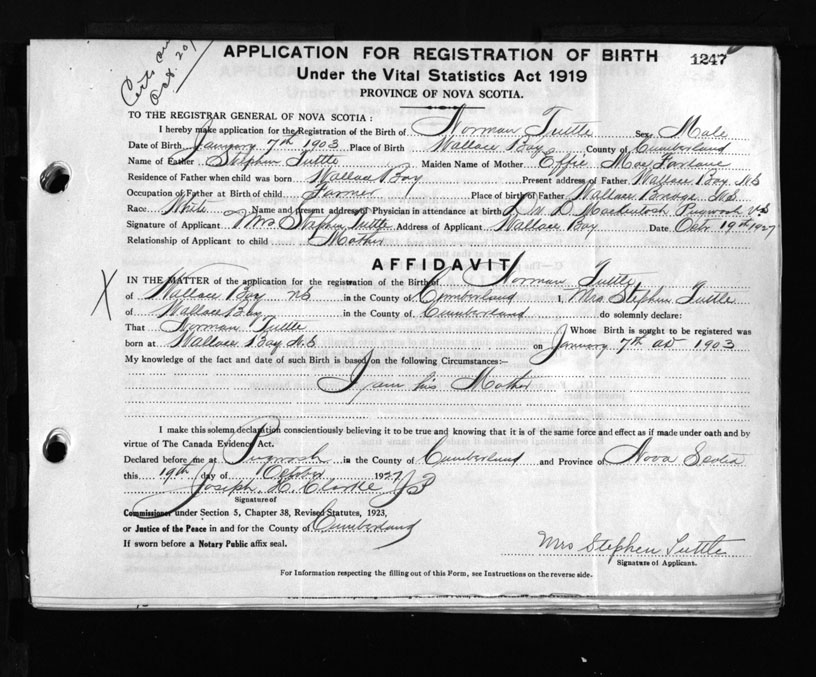 APPLICATION FOR REGISTRATION OF BIRTH
1247
Under the Vital Statistics Act 1919
PROVINCE OF NOVA SCOTIA.
TO THE REGISTRAR GENERAL OF NOVA SCOTIA :
I hereby make application for the Registration of the Birth of Norman Tuttle Sex, Male
Date of Birth January 7th 1903 Place of Birth Wallace Bay County of Cumberland
Name of Father Stephen Tuttle Maiden Name of Mother Effie MacFarlane
Residence of Father when child was born Wallace Bay Present address of Father Wallace Bay NS
Occupation of Father at Birth of child Farmer Place of birth of Father Wallace Bridge NS
Race White Name and present address of Physician in attendance at birth D Mackintosh Pugwash NS
Signature of Applicant Mrs Stephen Tuttle Address of Applicant Wallace Bay Date Octr 19th 1927
Relationship of Applicant to child Mother
AFFIDAVIT
X
IN THE MATTER of the application for the registration of the Birth of Norman Tuttle
of Wallace Bay NS in the County of Cumberland I, Mrs Stephen Tuttle
of Wallace Bay in the County of Cumberland do solemnly declare:
That Norman Tuttle Whose Birth is sought to be registered was
born at Wallace Bay N.S on January 7th AD 1903
My knowledge of the fact and date of such Birth is based on the following Circumstances:—
I am his Mother
I make this solemn declaration conscientiously believing it to be true and knowing that it is of the same force and effect as if made under oath and by
virtue of The Canada Evidence Act.
Declared before me at Pugwash in the County of Cumberland and Province of Nova Scotia
this 19th day of October 1927
Joseph H. Clarke JP
Signature of
Commissioner under Section 5, Chapter 38, Revised Statutes, 1923,
or Justice of the Peace in and for the County of Cumberland
If sworn before a Notary Public affix seal.
Mrs Stephen Tuttle
Signature of Applicant.
For Information respecting the filling out of this Form, see Instructions on the reverse side.